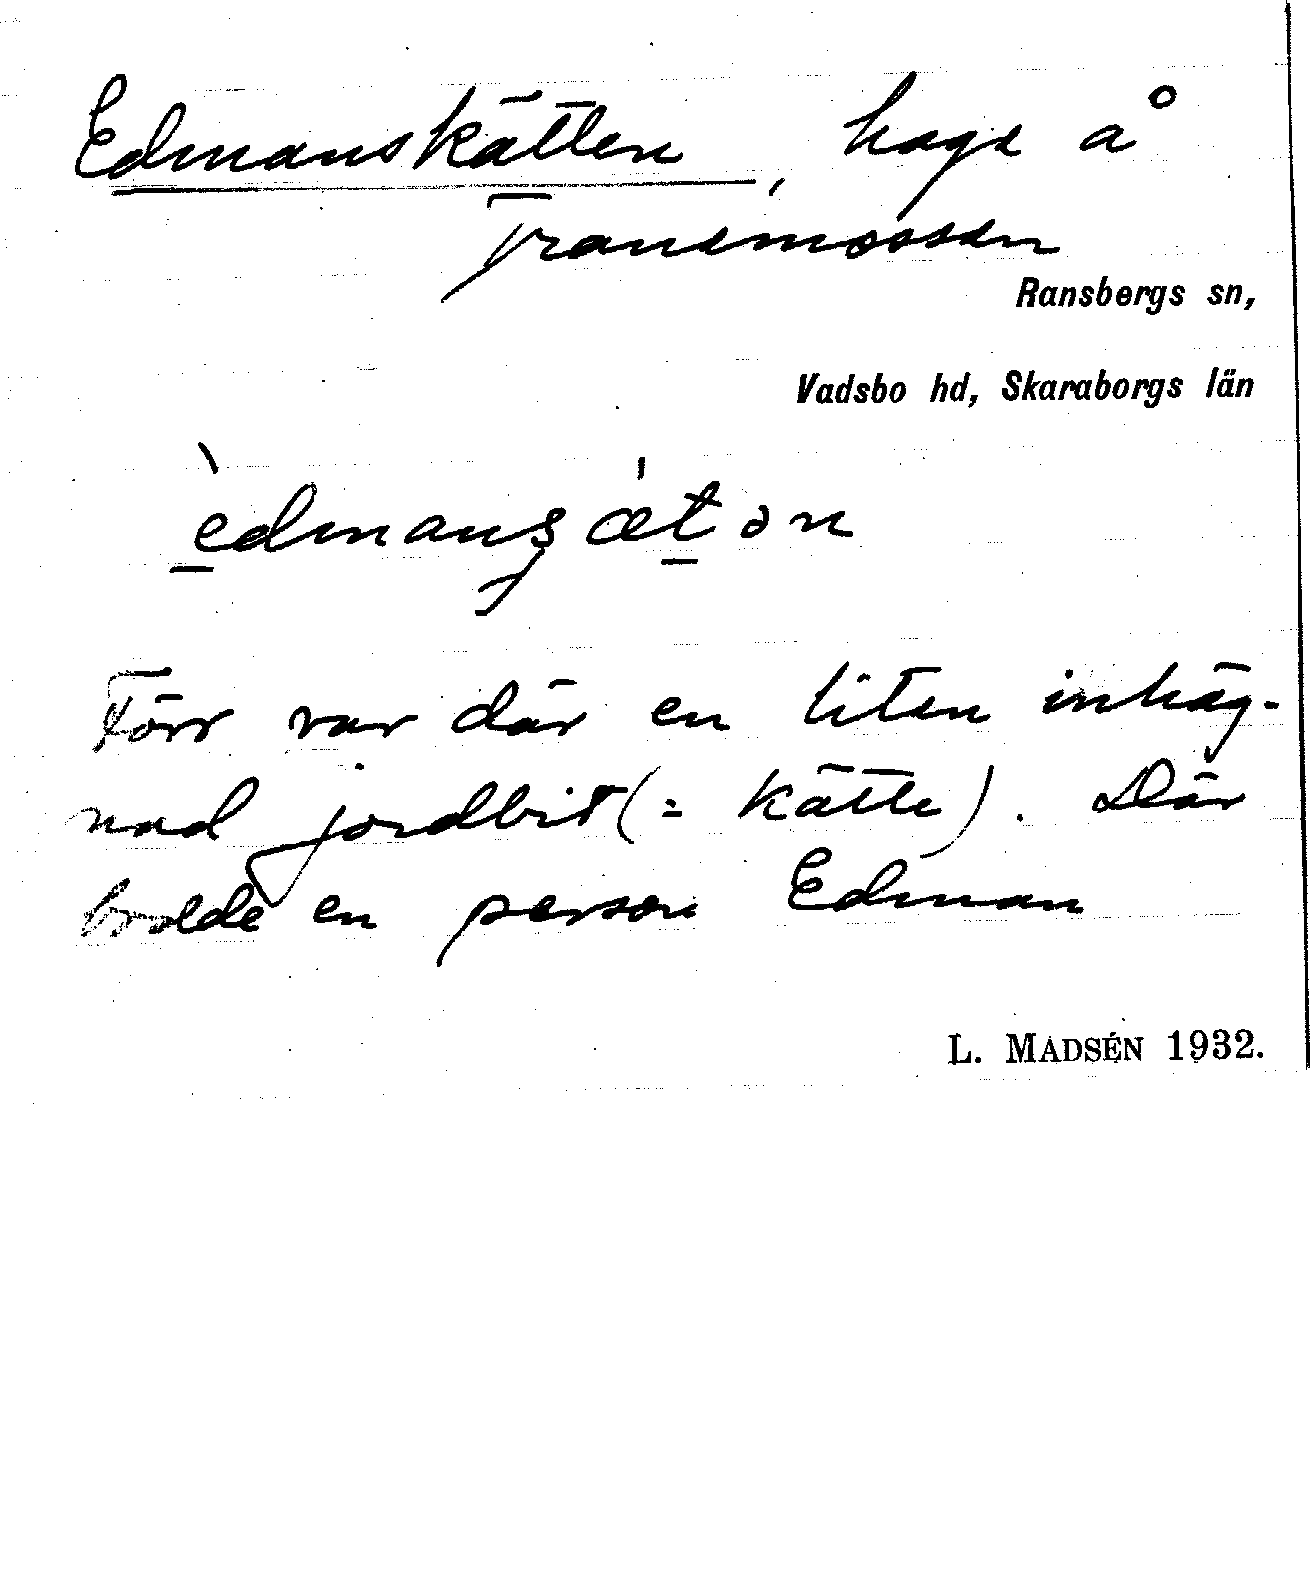 Edmanskätten, hage å
Tranemossen
Ransbergs sn,
Vadsbo hd, Skaraborgs län
Förr var där en liten inhäg-
nad jordbit (= kätte). Där
bodde en person Edman
L. MADSÉN 1932.